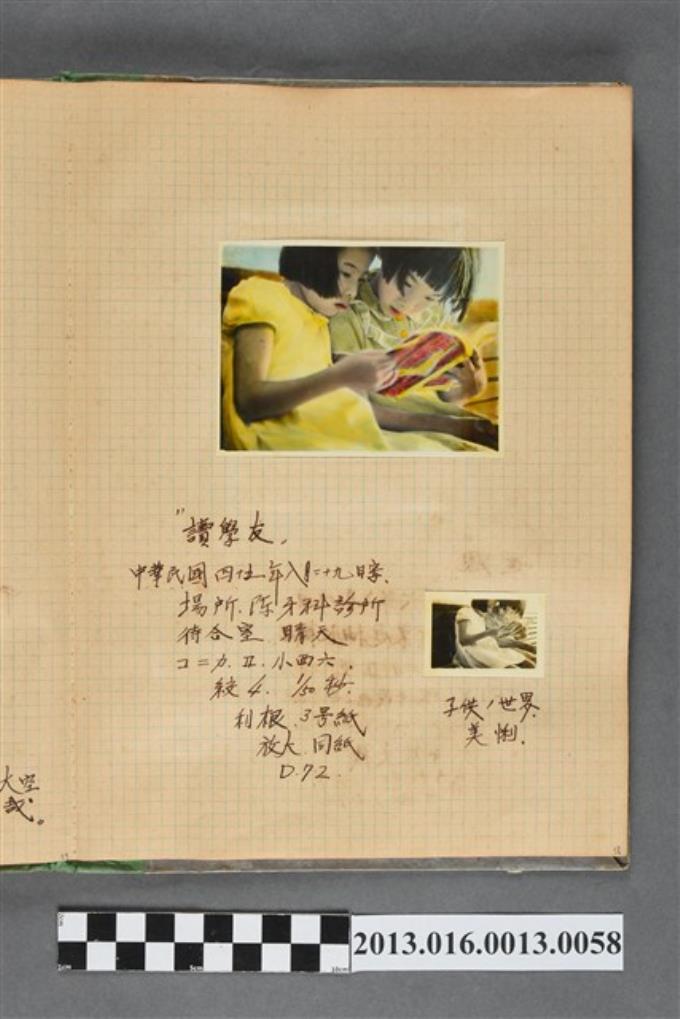 "讀學友,
中華民國四十五年八月二十九日寫.
場所.陈牙科診所
待合室 晴天
コニカ.Ⅱ.小西六.
絞4. 1/50秒.
利根.3号紙
放大.同紙
D.72.
子供ノ世界.
美悧.
大空
哉。
2013.016.0013.0058